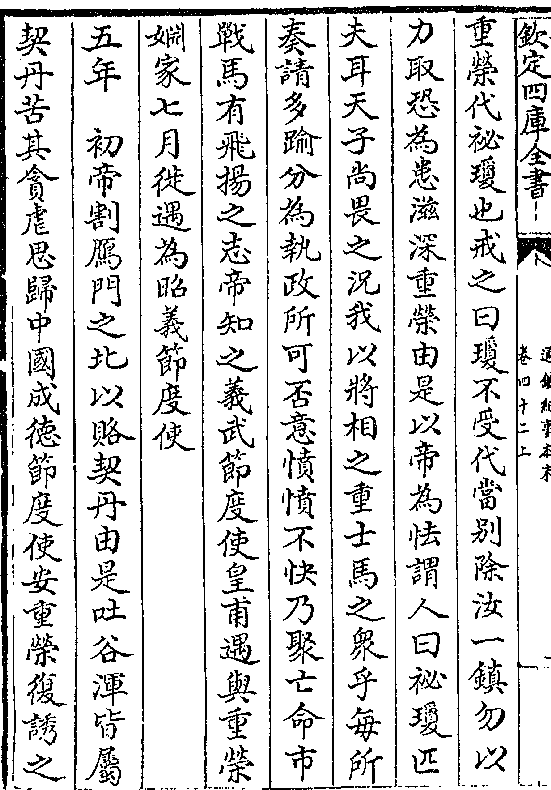 欽定四庫全書
通鑑紀事本末
卷四十二上
重榮代祕瓊也戒之曰瓊不受代當别除汝一鎮勿以
力取恐為患滋深重榮由是以帝為怯謂人曰祕瓊匹
夫耳天子尚畏之況我以將相之重士馬之衆乎每所
奏請多踰分為執政所可否意憤憤不快乃聚亡命市
戰馬有飛揚之志帝知之義武節度使皇甫遇與重榮
姻家七月徙遇為昭義節度使
五年　初帝割鴈門之北以賂契丹由是吐谷渾皆屬
契丹苦其貪虐思歸中國成徳節度使安重榮復誘之